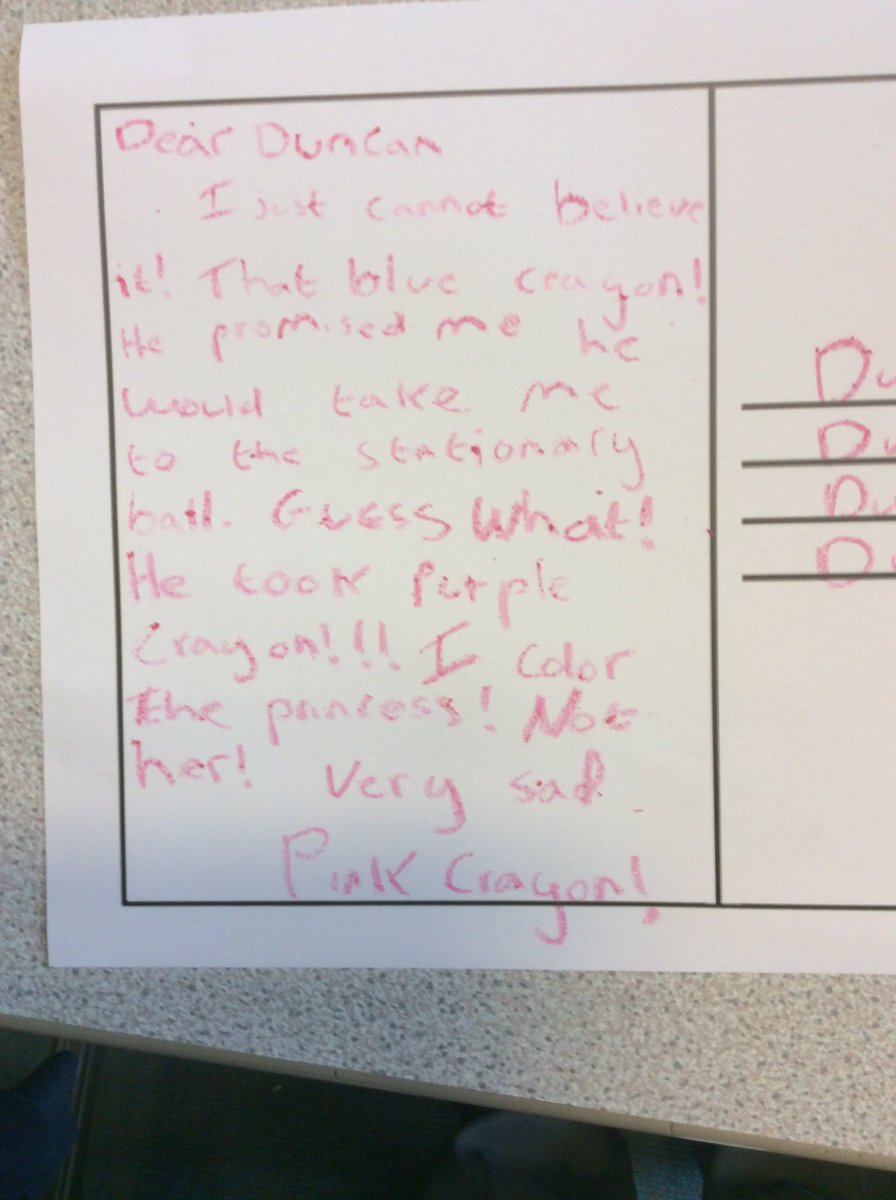 Dear Duncan
I just cannot believe
it! That blue crayon!
He promised me he
would take me
to the stationary
ball. Guess What!
He took Purple
Crayon!!! I color
the princess! Not
her! Very sad
Pink Crayon!
Du
Du
Du
Du